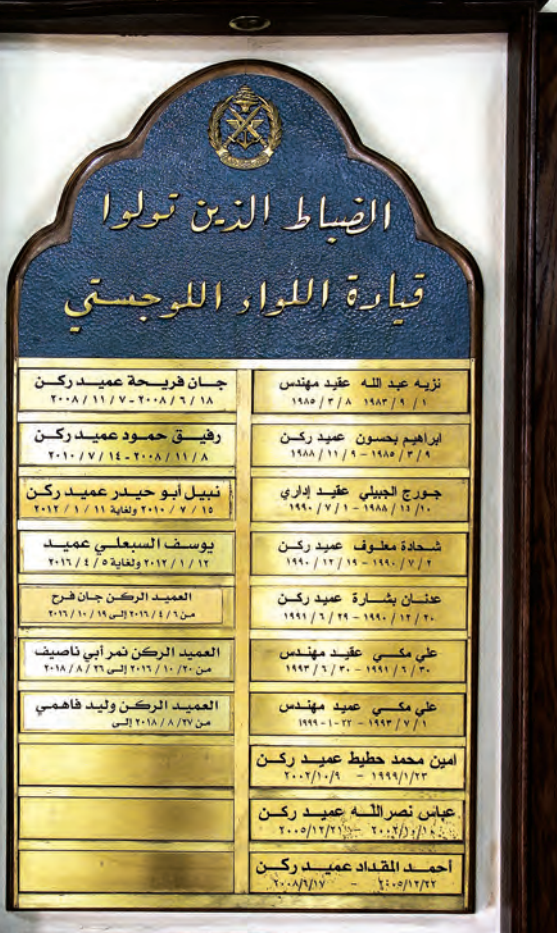 الضباط الذين تولوا
قيادة اللواء اللوجستي
نزيه عبد الله عقيد مهندس
١ / ٩ / ١٩٨٣ ٨ / ٣ / ١٩٨٥
ابراهيم بحسون عميد ركن
٩ / ٣ / ١٩٨٥ - ٩ / ١١ / ١٩٨٨
جورج الجبيلي عقيد إداري
١٠ / ١١ / ١٩٨٨ - ١ / ٧ / ١٩٩٠
شحادة معلوف عميد ركن
٢ / ٧ / ١٩٩٠ - ١٩ / ١٢ / ١٩٩٠
عدنان بشارة عميد ركن
٢٠ / ١٢ / ١٩٩٠ - ٢٩ / ٦ / ١٩٩١
علي مكي عقيد مهندس
٣٠ / ٦ / ١٩٩١ - ٣٠ / ٦ / ١٩٩٣
علي مكي عميد مهندس
١ / ٧ / ١٩٩٣ - ٢٢ - ١ - ١٩٩٩
امين محمد حطيط عميد ركن
١٩٩٩/١/٢٣ - ٢٠٠٢/١٠/٩
عباس نصرالله عميد ركن
٢٠٠٢/١٠/١٠ - ٢٠٠٥/١٢/٢١
أحمد المقداد عميد ركن
٢٠٠٥/١٢/٢٢ - ٢٠٠٨/٦/١٧
جان فريحة عميد ركن
١٨ / ٦ / ٢٠٠٨ - ٧ / ١١ / ٢٠٠٨
رفيق حمود عميد ركن
٨ / ١١ / ٢٠٠٨ - ١٤ / ٧ / ٢٠١٠
نبيل أبو حيدر عميد ركن
١٥ / ٧ / ٢٠١٠ ولغاية ١١ / ١ / ٢٠١٢
يوسف السبعلي عميد
١٢ / ١ / ٢٠١٢ ولغاية ٥ / ٤ / ٢٠١٦
العميد الركن جان فرح
من ٦ / ٤ / ٢٠١٦ إلى ١٩ / ١٠ / ٢٠١٦
العميد الركن نمر أبي ناصيف
من ٢٠ / ١٠ / ٢٠١٦ إلى ٢٦ / ٨ / ٢٠١٨
العميد الركن وليد فاهمي
من ٢٧ / ٨ / ٢٠١٨ إلى